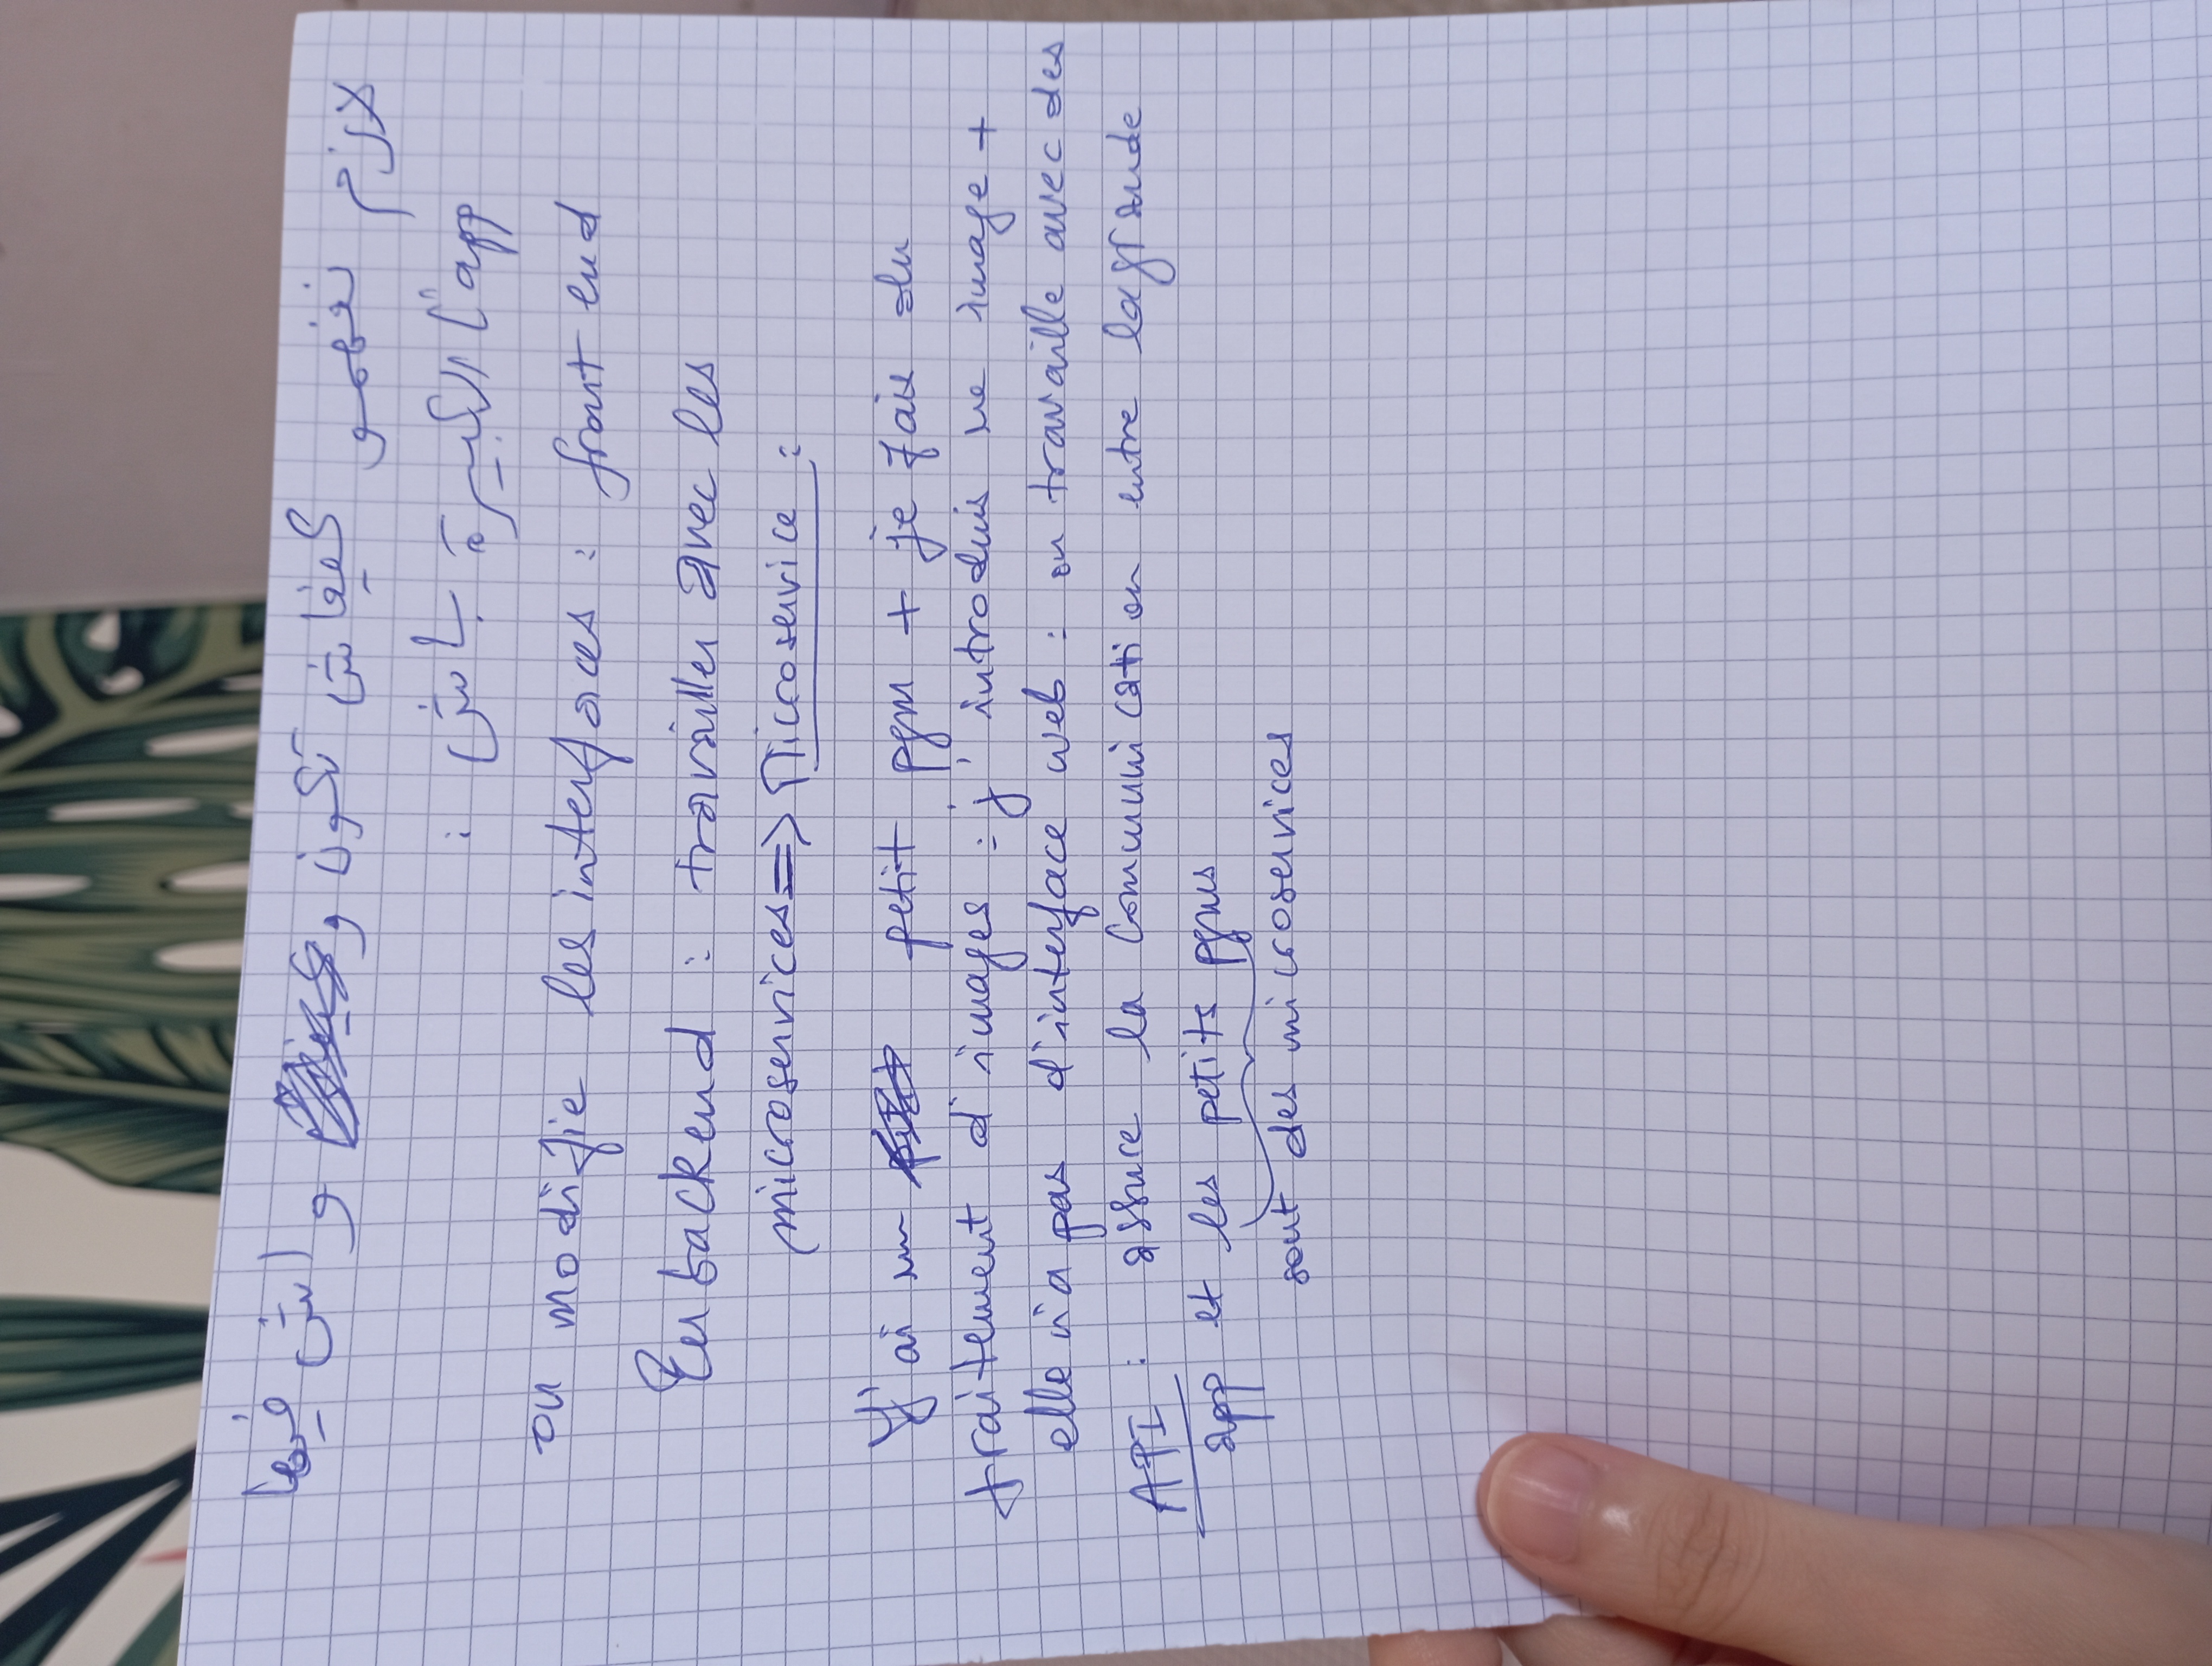 لازم نفهمو كيفاش تكون و واش فيها
l'app الكبيرة باش :
on modifie les interfaces : front end
En backend : travailler avec les
microservices => Microservice :
J'ai un petit pgm + je fais du
traitement d'images : j'introduis une image +
elle n'a pas d'interface web : on travaille avec des
API : assure la communication entre la grande
app et les petits pgms
sont des microservices